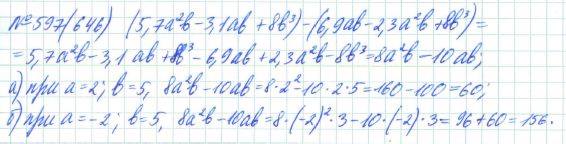 №597(646) (5,7a²b-3,1ab+8b³)-(6,9ab-2,3a²b+8b³)=
=5,7a²b-3,1ab+8b³-6,9ab+2,3a²b-8b³=8a²b-10ab;
а) при a=2; b=5, 8a²b-10ab=8·2²-10·2·5=160-100=60;
б) при a=-2; b=5, 8a²b-10ab=8·(-2)²·3-10·(-2)·3=96+60=156.